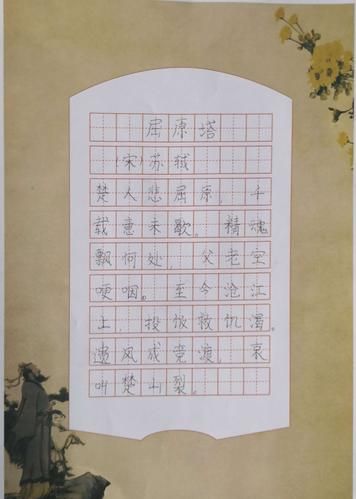 屈原塔
(宋)苏轼
楚人悲屈原，千
载意未歇。精魂
飘何处，父老空
哽咽。至今沧江
上，投饭救饥渴。
遗风成竞渡，哀
叫楚山裂。